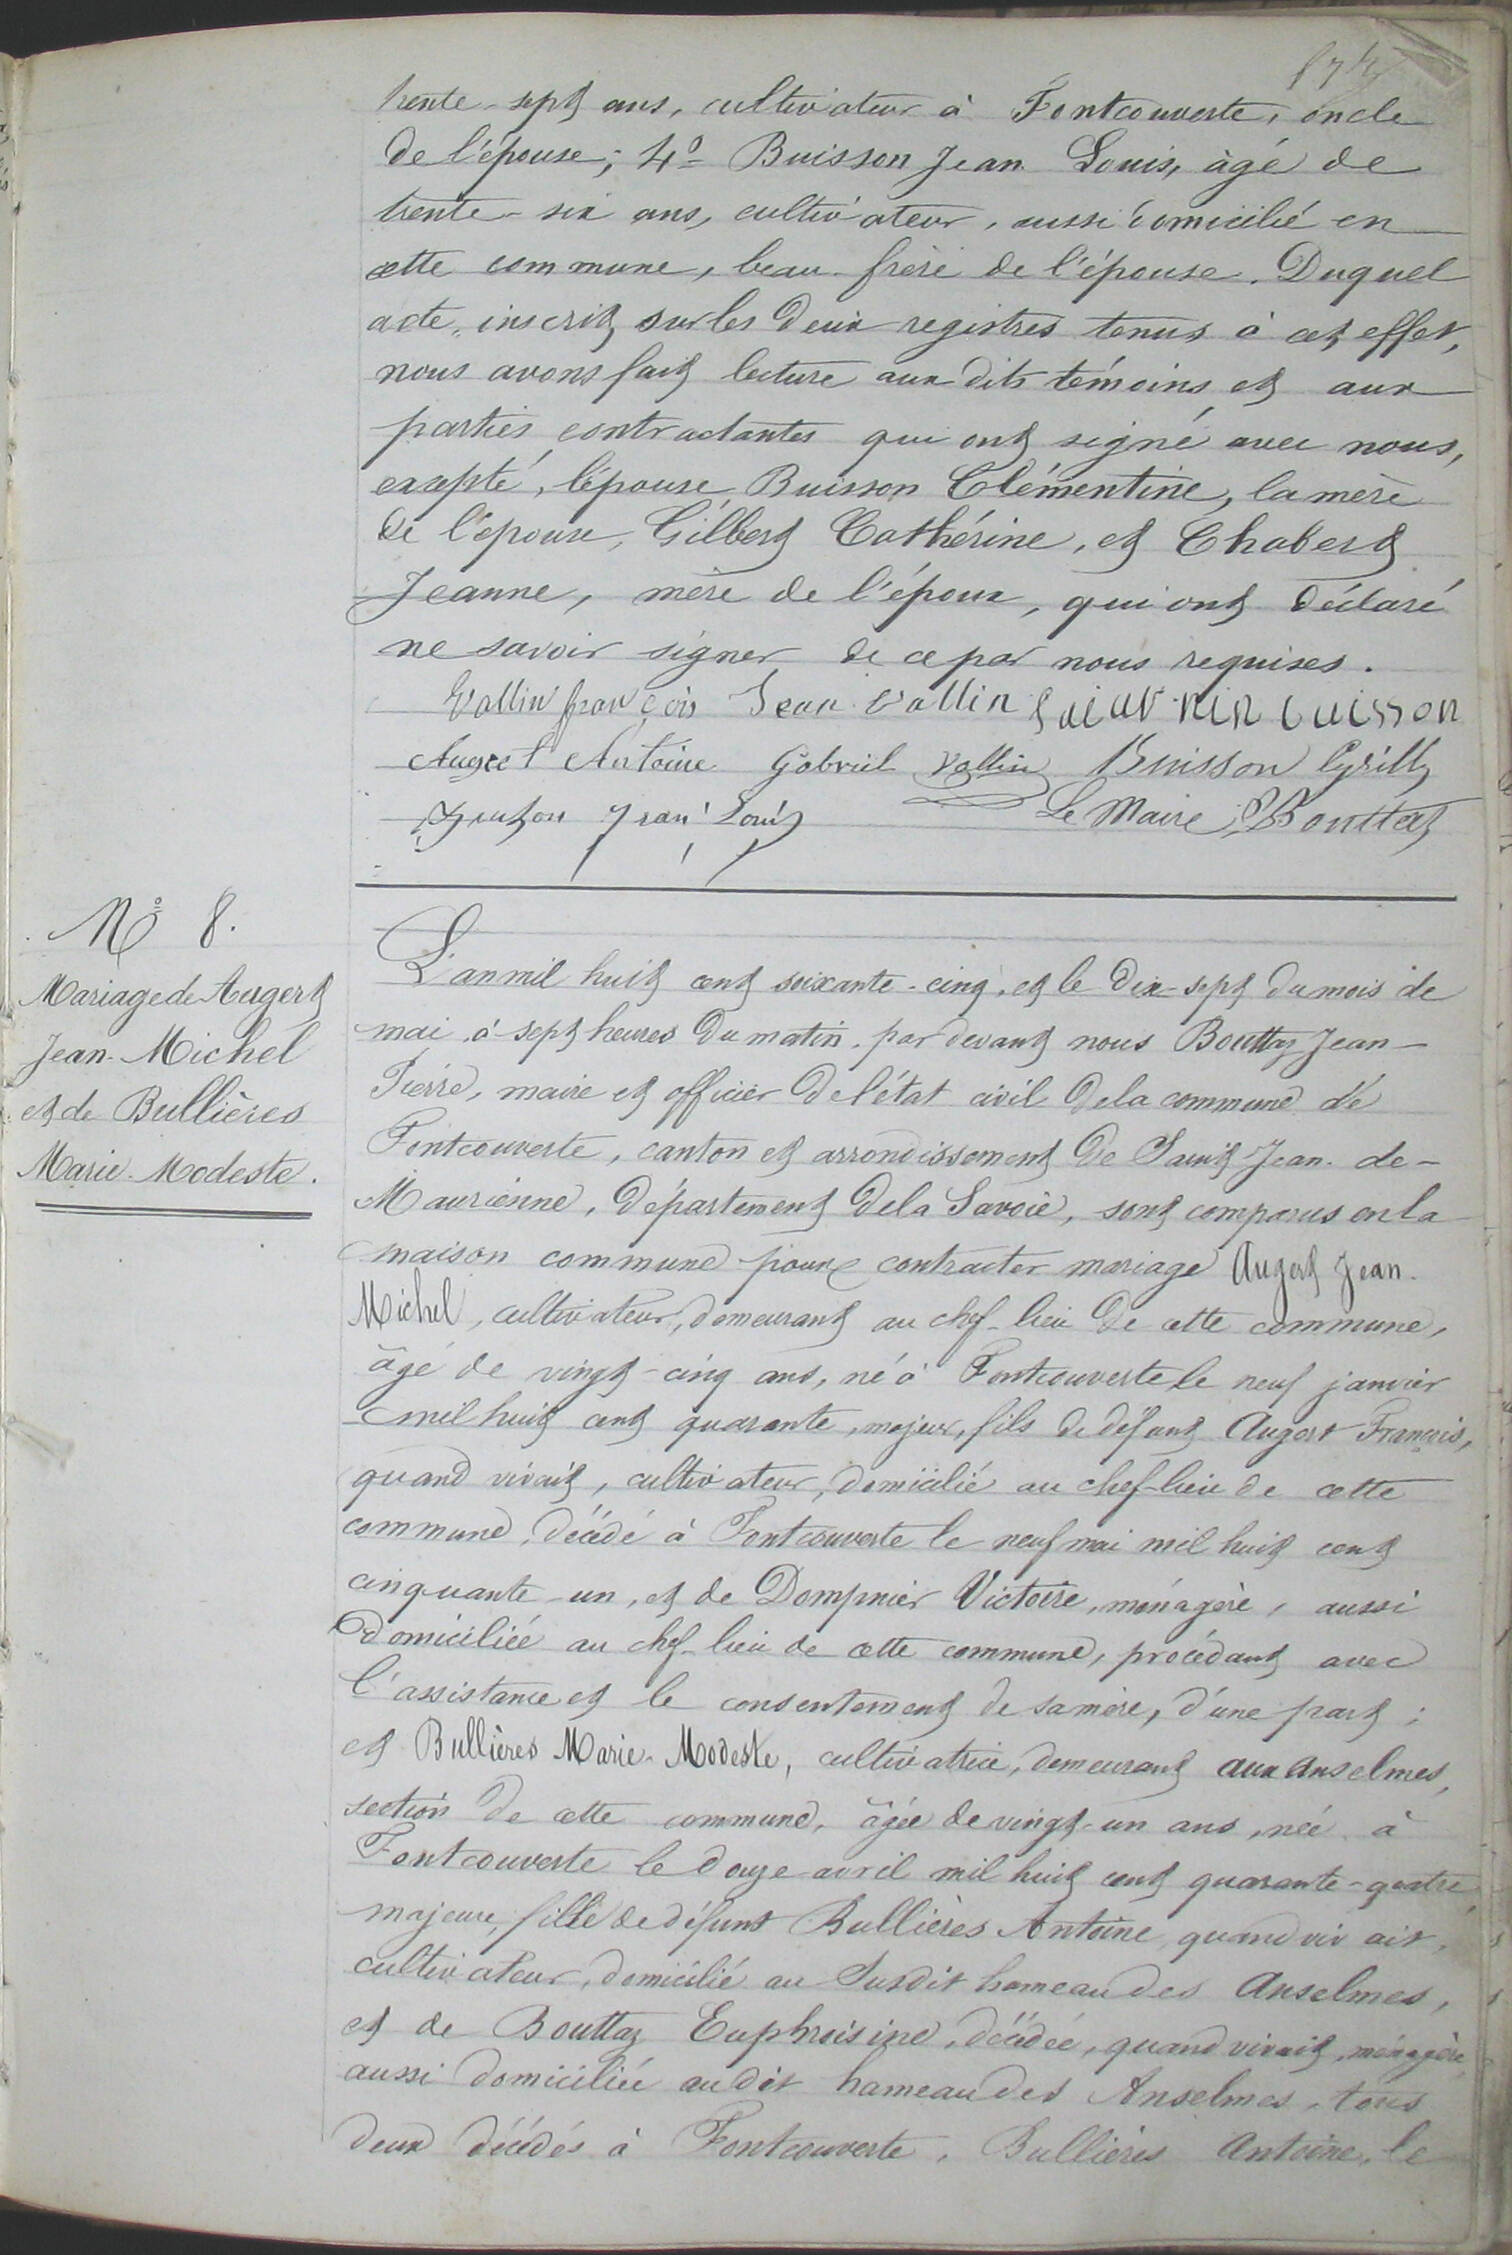 174
trente-sept ans, cultivateur à Fontcouverte, oncle
de l'épouse; 4º Buisson Jean Louis, âgé de
trente-six ans, cultivateur, aussi domicilié en
cette commune, beau-frère de l'épouse. Duquel
acte, inscrit sur les deux registres tenus à cet effet,
nous avons fait lecture aux dits témoins et aux
parties contractantes qui ont signé avec nous,
excepté, l'épouse Buisson Clémentine, la mère
de l'épouse, Gilbert Cathérine, et Chabert
Jeanne, mère de l'époux, qui ont déclaré
ne savoir signer de ce par nous requises.
Vallin françois Jean Vallin buisson
Augert Antoine Gabriel Vallin Buisson Cyrille
Jean Louis Le Maire, Bouttaz
Nº 8.
Mariage de Augert
Jean-Michel
et de Bullières
Marie-Modeste.
L'an mil huit cent soixante-cinq, et le dix-sept du mois de
mai, à sept heures du matin, par devant nous Bouttaz Jean-
Pierre, maire et officier de l'état civil de la commune de
Fontcouverte, canton et arrondissement de Saint Jean-de-
Maurienne, département de la Savoie, sont comparus en la
maison commune pour contracter mariage Augert Jean-
Michel, cultivateur, demeurant au chef-lieu de cette commune,
âgé de vingt-cinq ans, né à Fontcouverte le neuf janvier
mil huit cent quarante, majeur, fils de défunt Augert François,
quand vivait, cultivateur, domicilié au chef-lieu de cette
commune, décédé à Fontcouverte le neuf mai mil huit cent
cinquante-un, et de Dompnier Victoire, ménagère, aussi
domiciliée au chef-lieu de cette commune, procédant avec
l'assistance et le consentement de sa mère, d'une part;
et Bullières Marie-Modeste, cultivatrice, demeurant aux Anselmes,
section de cette commune, âgée de vingt-un ans, née à
Fontcouverte le douze avril mil huit cent quarante-quatre,
majeure, fille de défunt Bullières Antoine, quand vivait,
cultivateur, domicilié au susdit hameau des Anselmes,
et de Bouttaz Euphroisine, décédée, quand vivait, ménagère
aussi domiciliée au dit hameau des Anselmes, tous
deux décédés à Fontcouverte, Bullières Antoine, le